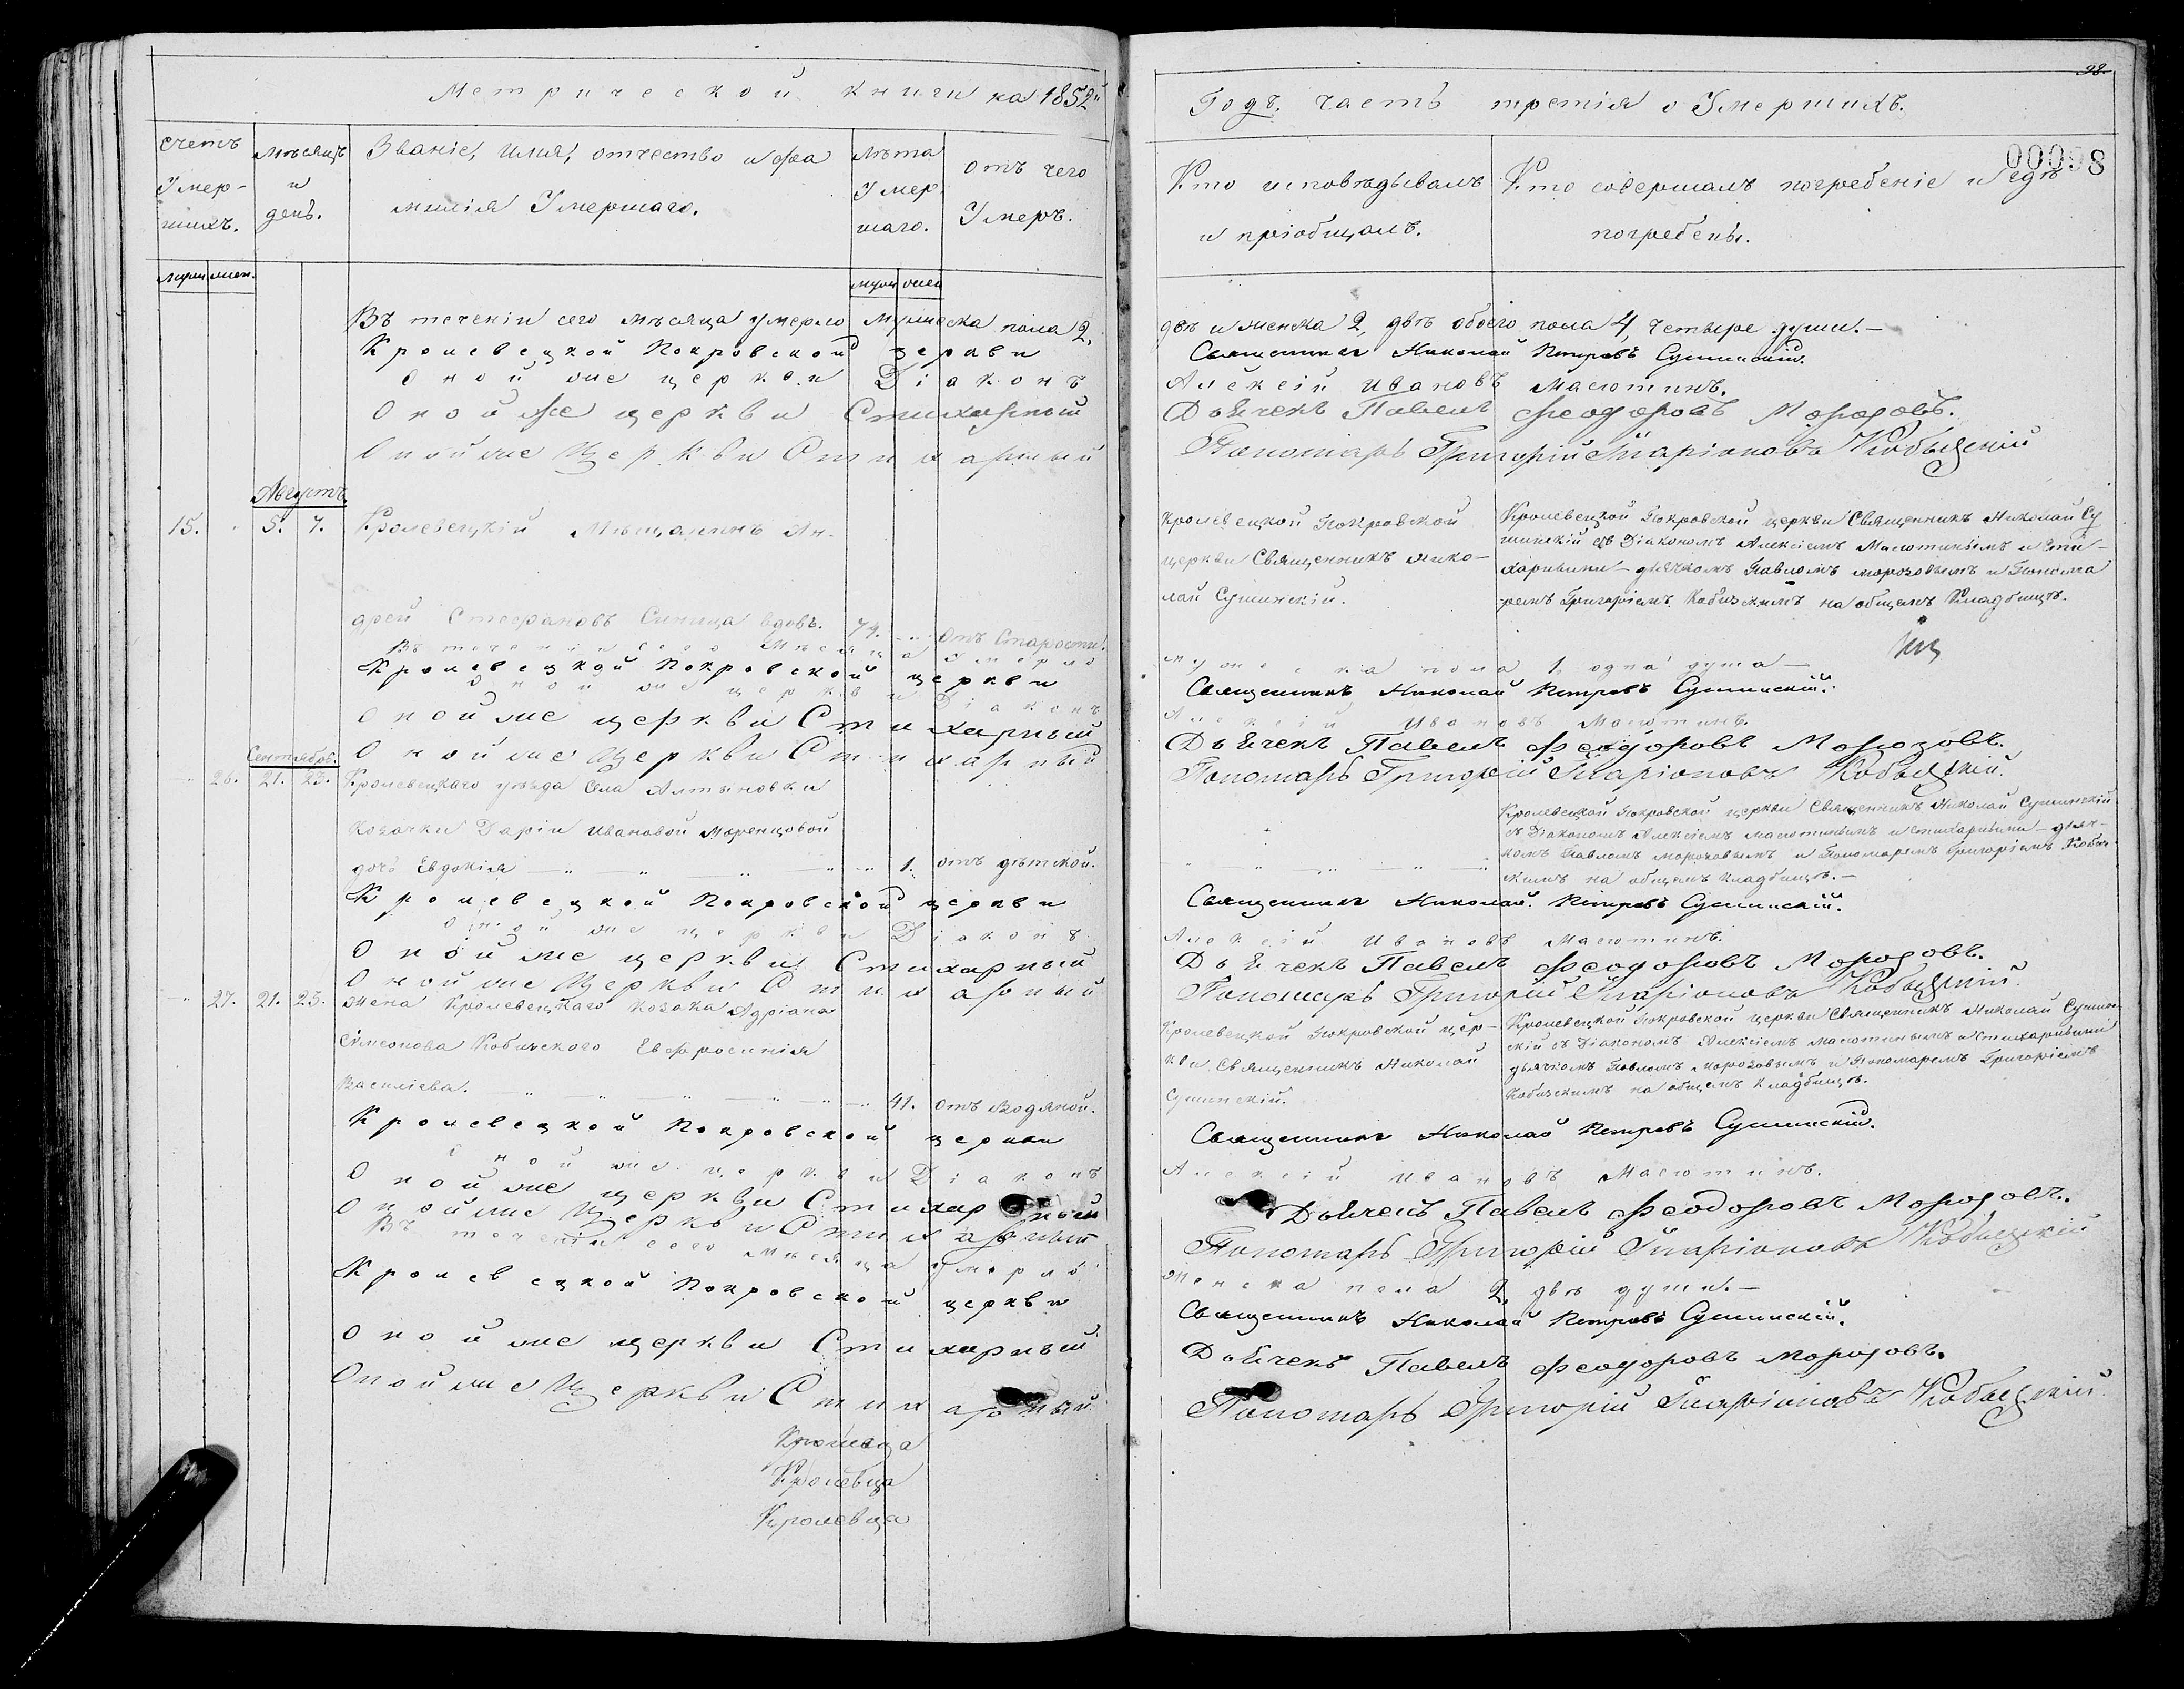 Метрической книги на 1852й
счетъ Умер-шихъ.
мѣсяцъ и день.
Званіе, имя, отчество и фа
милія Умершаго.
лѣта Умер шаго.
отъ чего Умеръ.
муж. жен.
муж. жен.
Въ теченіи сего мѣсяца умерло Мужеска пола 2,
Кролевецкой Покровской церкви
Оной же церкви Діаконъ
Оной же церкви Стихарный
Оной же Церкви Стихарный
Августъ.
15. 5. 7. Кролевецкій Мѣщанинъ Ан-
дрей Стефановъ Синица вдовъ. 79. отъ Старости.
Въ теченіи сего Мѣсяца умерло
Кролевецкой Покровской церкви
Оной же церкви Діаконъ
Оной же церкви Стихарный
Оной же Церкви Стихарный
Сентябрь.
26. 21. 23. Кролевецкаго уѣзда Села Алтыновки
козачки Даріи Ивановой Моренцовой
дочь Евдокія 1. отъ дѣтской.
Кролевецкой Покровской церкви
Оной же церкви Діаконъ
Оной же церкви Стихарный
Оной же Церкви Стихарный
27. 21. 23. Жена Кролевецкаго козака Адріана
Симеонова Кобизскаго Евфросинія
Василіева. 41. отъ Водяной.
Кролевецкой Покровской церкви
Оной же церкви Діаконъ
Оной же церкви Стихарный
Оной же Церкви Стихарный
Въ теченіи сего мѣсяца умерло
Кролевецкой Покровской церкви
Оной же церкви Стихарный
Оной же Церкви Стихарный
Кролевца
Кролевца
Кролевца
98.
Годъ. часть третія о Умершихъ.
00098
Кто исповѣдывалъ
и пріобщалъ.
Кто совершалъ погребеніе и гдѣ
погребены.
двѣ и женска 2, двѣ обоего пола 4, четыре души.—
Священникъ Николай Петровъ Сушинскій.
Алексій Ивановъ Масютинъ.
Дьячекъ Павелъ Феодоровъ Морозовъ.
Пономарь Григорій Иларіоновъ Кобызскій
Кролевецкой Покровской
церкви Священникъ Нико-
лай Сушинскій.
Кролевецкой Покровской церкви Священникъ Николай Су
шинскій съ Діакономъ Алексіемъ Масютинымъ и Сти-
харными—дьячкомъ Павломъ Морозовымъ и Понома
ремъ Григоріемъ Кобизскимъ на общемъ Кладбищѣ.
мужеска пола 1, одна душа—
Священникъ Николай Петровъ Сушинскій.
Алексій Ивановъ Масютинъ.
Дьячекъ Павелъ Феодоровъ Морозовъ.
Пономарь Григорій Иларіоновъ Кобызскій.
Кролевецкой Покровской церкви Священникъ Николай Сушинскій
съ Діакономъ Алексіемъ Масютинымъ и Стихарными—дьяч-
комъ Павломъ Морозовымъ и Пономаремъ Григоріемъ Кобиз-
скимъ на общемъ кладбищѣ.—
Священникъ Николай Петровъ Сушинскій.
Алексій Ивановъ Масютинъ.
Дьячекъ Павелъ Феодоровъ Морозовъ.
Пономарь Григорій Иларіоновъ Кобызскій.
Кролевецкой Покровской цер-
кви Священникъ Николай
Сушинскій.
Кролевецкой Покровской церкви Священникъ Николай Сушин-
скій съ Діакономъ Алексіемъ Масютинымъ и Стихарными
дьячкомъ Павломъ Морозовымъ и Пономаремъ Григоріемъ
Кобизскимъ на общемъ кладбищѣ.
Священникъ Николай Петровъ Сушинскій.
Алексій Ивановъ Масютинъ.
Дьячекъ Павелъ Феодоровъ Морозовъ.
Пономарь Григорій Иларіоновъ Кобызскій
Женска пола 2, двѣ души.—
Священникъ Николай Петровъ Сушинскій.
Дьячекъ Павелъ Феодоровъ Морозовъ.
Пономарь Григорій Иларіоновъ Кобызскій.